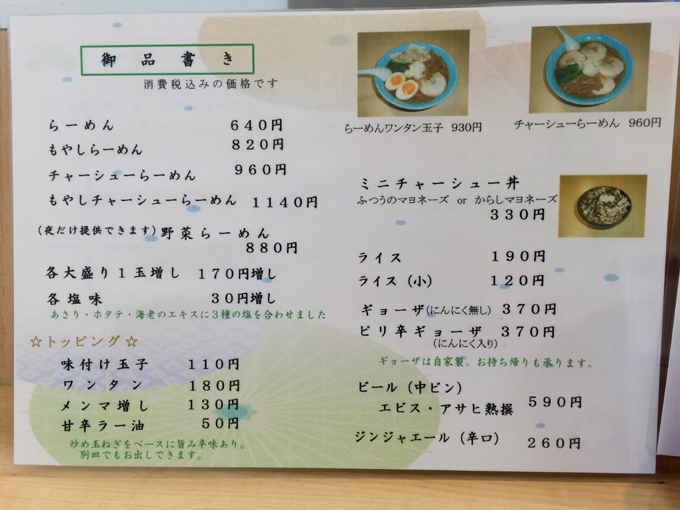 御品書き
消費税込みの価格です
らーめん 640円
もやしらーめん 820円
チャーシューらーめん 960円
もやしチャーシューらーめん 1140円
(夜だけ提供できます)野菜らーめん
880円
各大盛り1玉増し 170円増し
各塩味 30円増し
あさり・ホタテ・海老のエキスに3種の塩を合わせました
☆トッピング☆
味付け玉子 110円
ワンタン 180円
メンマ増し 130円
甘辛ラー油 50円
炒め玉ねぎをベースに旨み辛味あり。
別皿でもお出しできます。
らーめんワンタン玉子 930円
チャーシューらーめん 960円
ミニチャーシュー丼
ふつうのマヨネーズ or からしマヨネーズ
330円
ライス 190円
ライス(小) 120円
ギョーザ(にんにく無し) 370円
ピリ辛ギョーザ 370円
(にんにく入り)
ギョーザは自家製。お持ち帰りも承ります。
ビール(中ビン)
エビス・アサヒ熟撰 590円
ジンジャエール(辛口) 260円